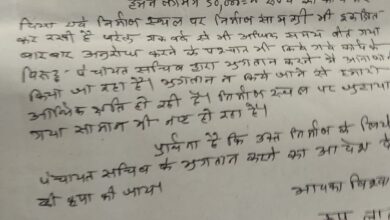 हमने लगभग 50,000=00
किया एवं निर्माण स्थल पर निर्माण सामग्री भी एकत्रित
कर रखी है परन्तु एक वर्ष से भी अधिक समय बीत गया
बारबार अनुरोध करने के पश्चात भी किये गये कार्य के
विरुद्ध पंचायत सचिव द्वारा भुगतान करने में आनाकानी
किया जा रहा है। भुगतान न किये जाने से हमारी
आर्थिक क्षति हो रही है। निर्माण स्थल पर जुटाया
गया सामान भी नष्ट हो रहा है।
प्रार्थना है कि उक्त निर्माण के लिये
पंचायत सचिव के भुगतान करने का आदेश दे
की कृपा की जाय।
आपका